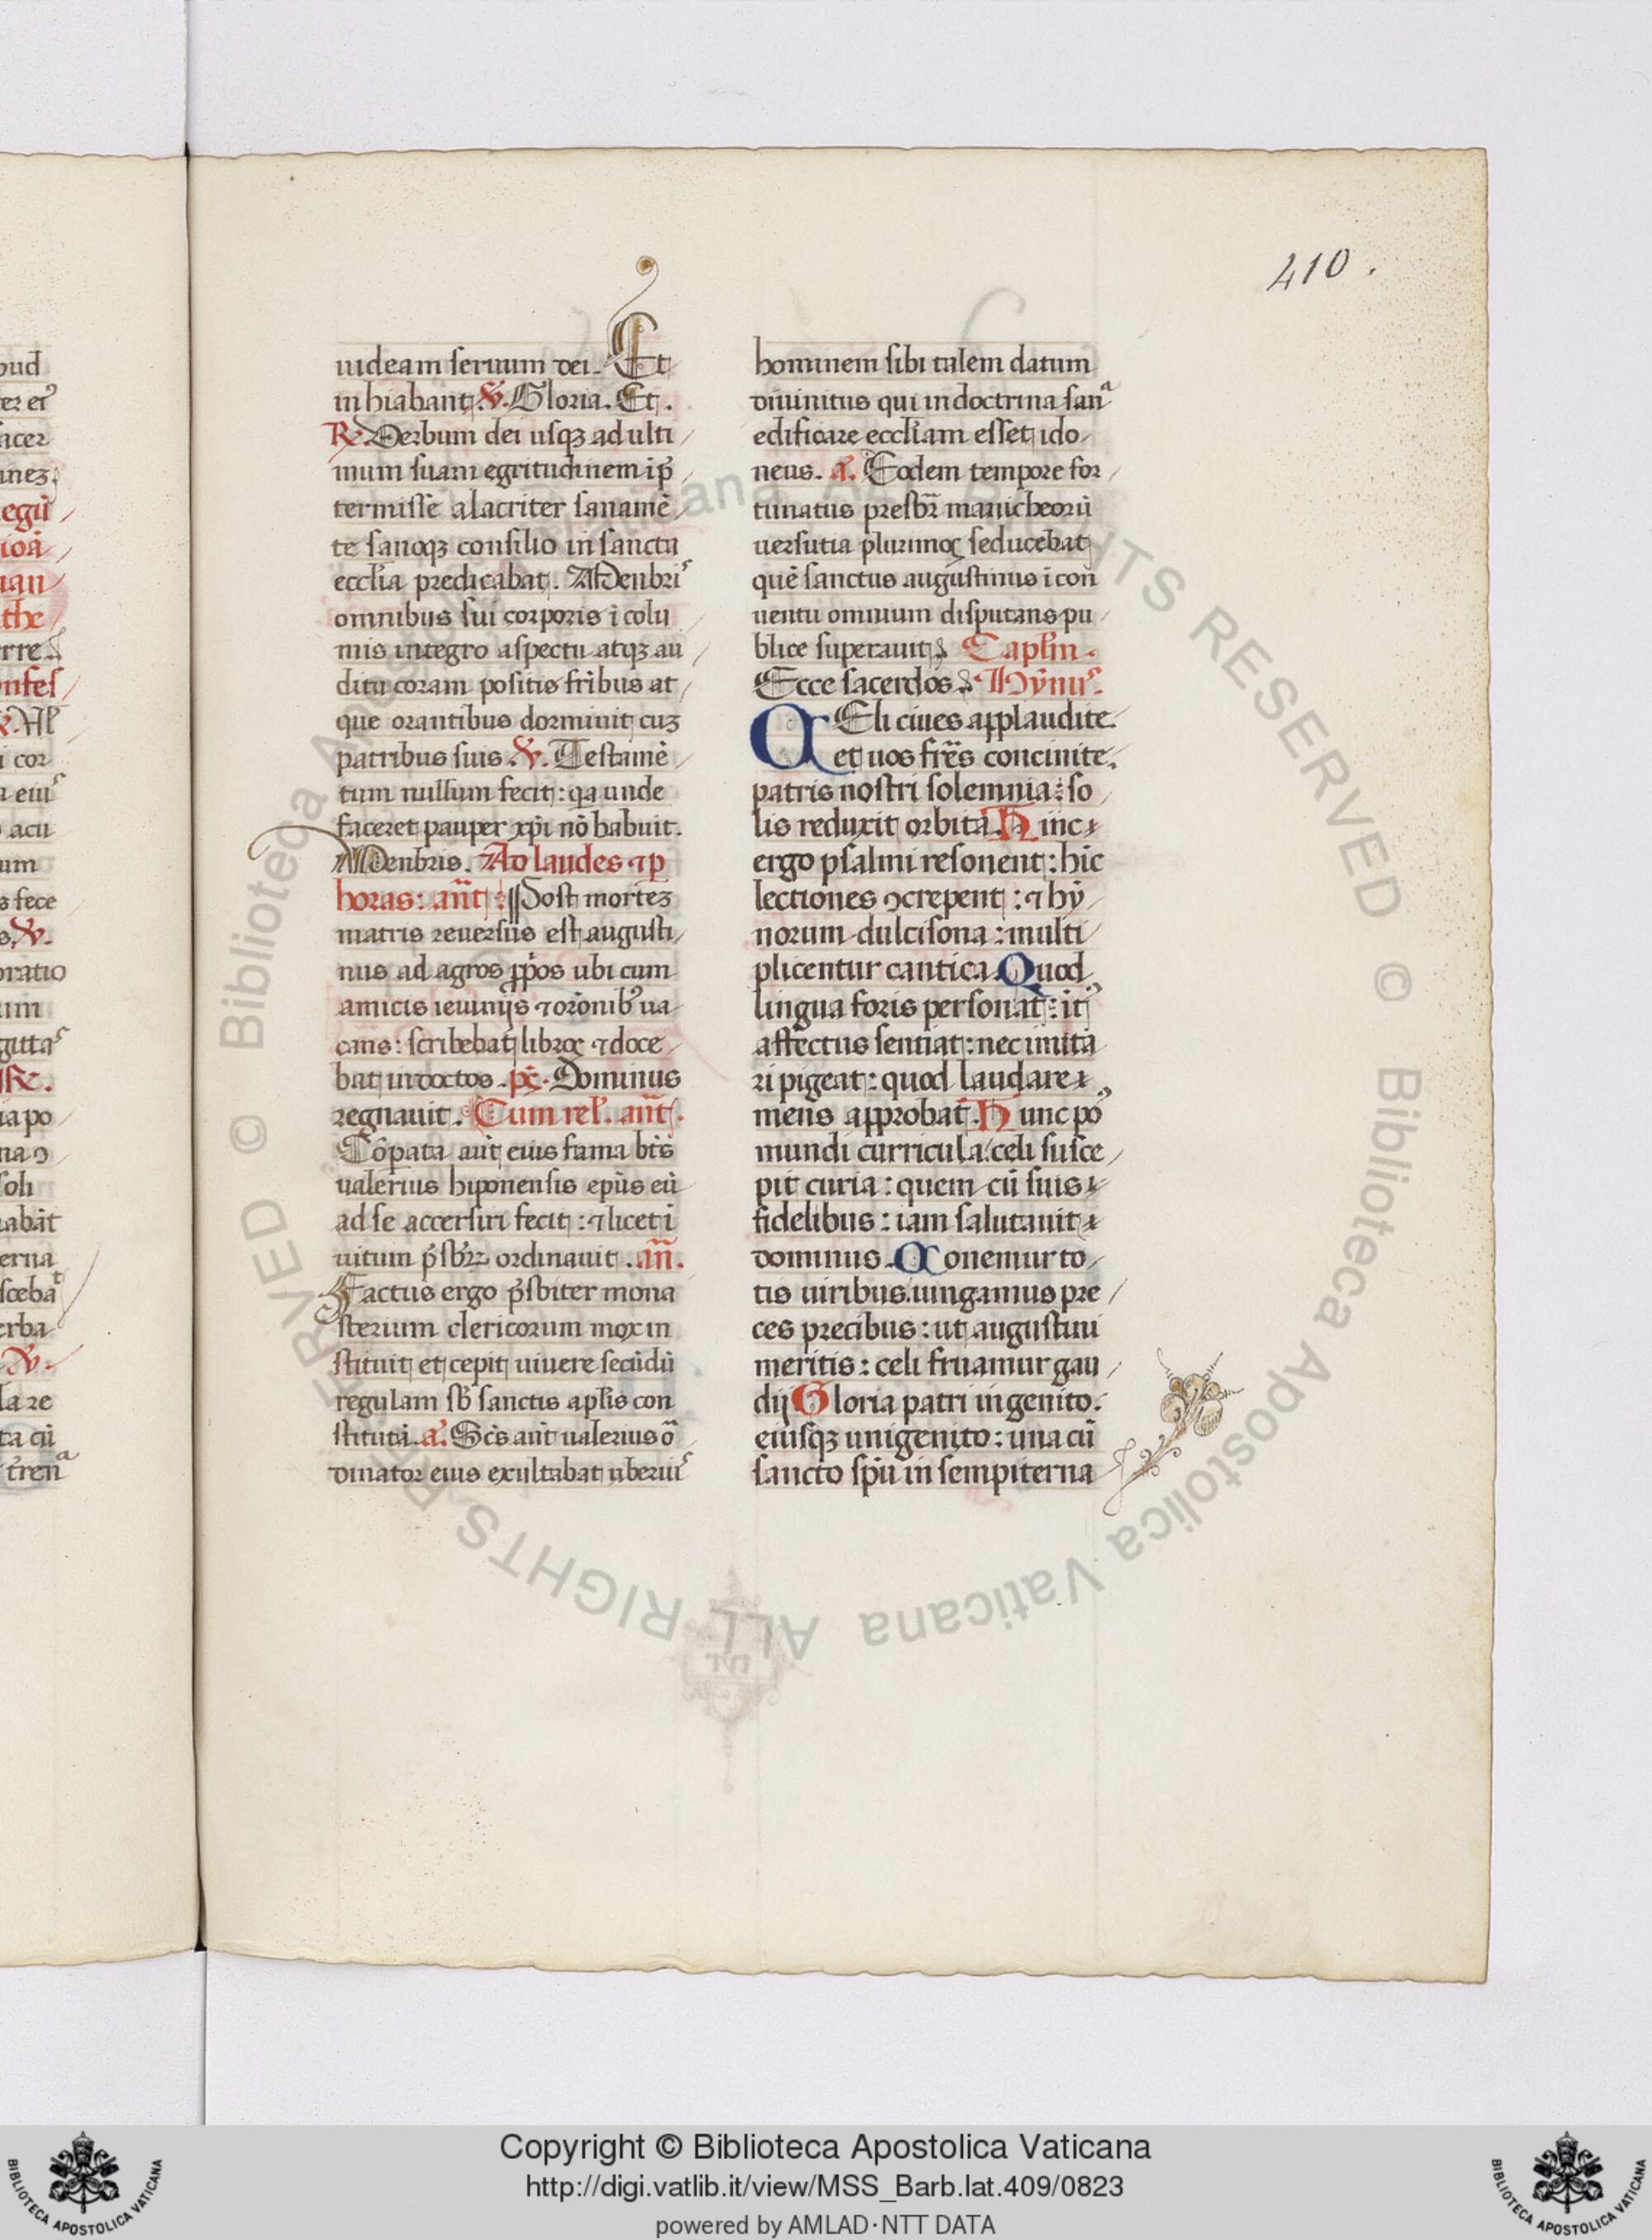 410.
uideam seruum dei. Et
inhiabant. ℣. Gloria. Et.
℟. Verbum dei usqꝫ ad ulti
mum suam egritudinem ip̄
termisse alacriter sana mē
te sanoqꝫ consilio in sancta
eccl̄ia predicabat. Menbris
omnibus sui corporis īcolu
mis integro aspectu atqꝫ au
ditu coram positis fr̄ibus at
que orantibus dormiuit cuꝫ
patribus suis. ℣. Testamē
tum nullum fecit: qa unde
faceret pauper xp̄i nō habuit.
Menbris. Ad laudes ⁊ p̲
horas: ant̄. Post morteꝫ
matris reuersus est augusti
nus ad agros ꝓp̄os ubi cum
amicis ieiuniis ⁊ orōnibꝰ ua
cans: scribebat libroꝝ ⁊ doce
bat indoctos. ps̄. Dominus
regnauit. Cum rel'. ant̄.
Cōpata aut̄ eius fama bt̄s
ualerius hiponensis ep̄us eū
ad se accersiri fecit: ⁊ licet ī
uitum p̄sbr̄ꝝ ordinauit. an̄.
Factus ergo p̄sbiter mona
sterium clericorum mox in
stituit et cepit uiuere secūdū
regulam sb̄ sanctis ap̄lis con
stitutā. a. Sc̄s aut̄ ualerius oꝛ̄
dinator eius exultabat uberius
hominem sibi talem datum
diuinitus qui in doctrina sanᵃ
edificare eccl̄iam esset ido
neus. a. Eodem tempore for
tunatus presbr̄ manicheorū
uersutia plurimoꝝ seducebat
quē sanctus augustinus ī con
uentu omnium disputans pu
blice superauit. Capl̄m.
Ecce sacerdos. Hȳnus.
Celi ciues applaudite
et uos fr̄es concinite.
patris nostri solemnia: so
lis reduxit orbita. Hinc
ergo psalmi resonent: hic
lectiones ꝯcrepent: ⁊ hy
norum dulcisona: multi
plicentur cantica. Quod
lingua foris personat: itꝰ
affectus sentiat: nec imita
ri pigeat: quod laudare
mens approbat. Hunc pꝰ
mundi curricula: celi susce
pit curia: quem cū suis
fidelibus: iam salutauit
dominus. Conemur to
tis uiribus. iungamus pre
ces precibus: ut augustini
meritis: celi fruamur gau
dii Gloria patri ingenito.
eiusqꝫ unigenito: una cū
sancto sp̄u in sempiterna
Copyright © Biblioteca Apostolica Vaticana
http://digi.vatlib.it/view/MSS_Barb.lat.409/0823
powered by AMLAD·NTT DATA